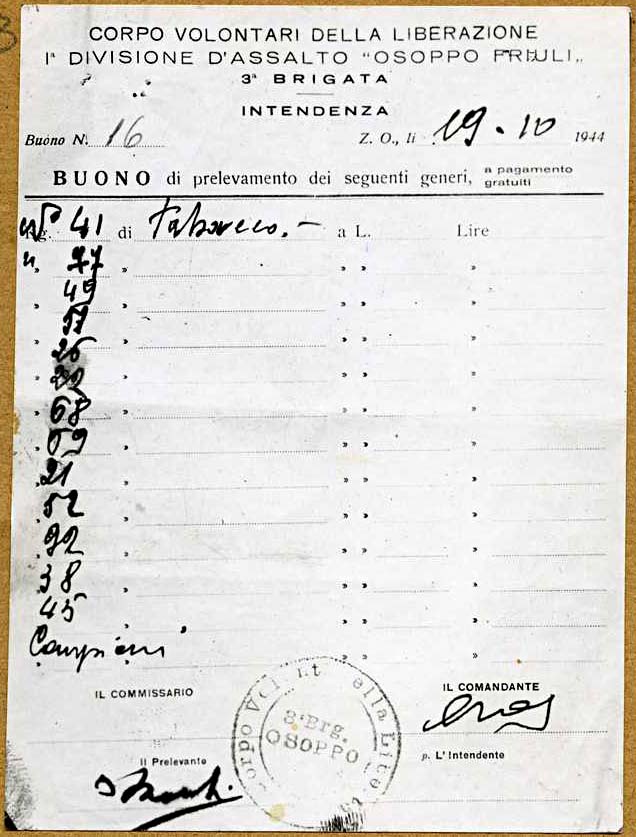 CORPO VOLONTARI DELLA LIBERAZIONE
Iª DIVISIONE D'ASSALTO "OSOPPO FRIULI„
3ª BRIGATA
INTENDENZA
Buono N. 16 Z. O., li 19.10 1944
BUONO di prelevamento dei seguenti generi, a pagamento gratuiti
41 di a L. Lire
" 77 " " " "
49 " " " "
" " " "
26 " " " "
" " " "
68 " " " "
69 " " " "
21 " " " "
52 " " " "
92 " " " "
38 " " " "
45 " " " "
" " "
IL COMMISSARIO IL COMANDANTE
3ª Brg.
OSOPPO
Il Prelevante p. L'Intendente